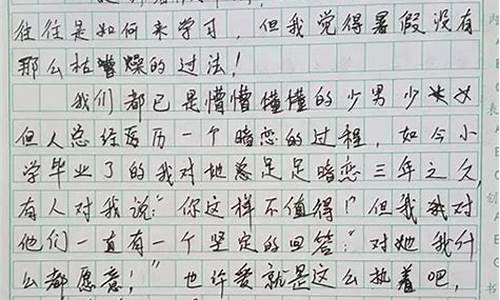 往往是如何来学习，但我觉得暑假没有
那么枯燥的过法！
我们都已是懵懵懂懂的少男少女
但人总经历一个暗恋的过程，如今小
学毕业了的我对她足足暗恋三年之久，
有人对我说：“你这样不值得！”但我对
他们一直有一个坚定的回答：“对她我什
么都愿意！”也许爱就是这么执着吧，